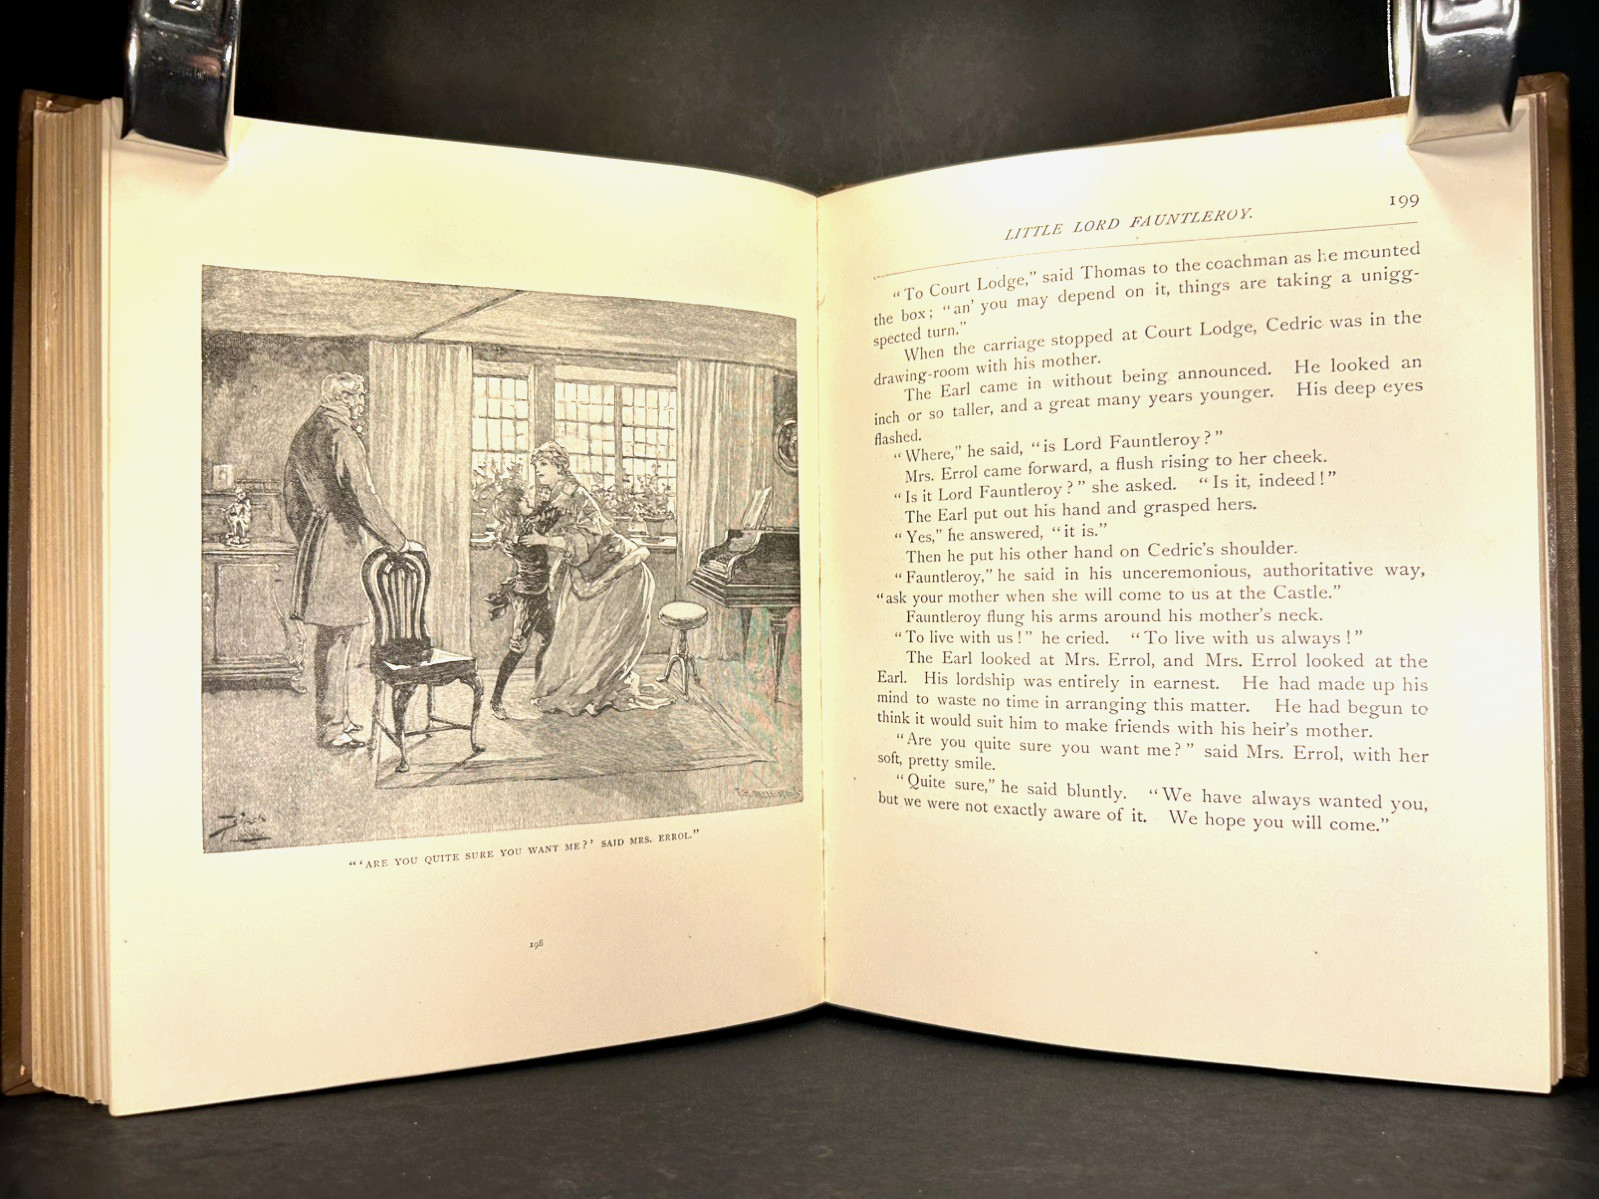 "'ARE YOU QUITE SURE YOU WANT ME?' SAID MRS. ERROL."
198
LITTLE LORD FAUNTLEROY.
199
"To Court Lodge," said Thomas to the coachman as he mounted
the box; "an' you may depend on it, things are taking a unigg-
spected turn."
When the carriage stopped at Court Lodge, Cedric was in the
drawing-room with his mother.
The Earl came in without being announced. He looked an
inch or so taller, and a great many years younger. His deep eyes
flashed.
"Where," he said, "is Lord Fauntleroy?"
Mrs. Errol came forward, a flush rising to her cheek.
"Is it Lord Fauntleroy?" she asked. "Is it, indeed!"
The Earl put out his hand and grasped hers.
"Yes," he answered, "it is."
Then he put his other hand on Cedric's shoulder.
"Fauntleroy," he said in his unceremonious, authoritative way,
"ask your mother when she will come to us at the Castle."
Fauntleroy flung his arms around his mother's neck.
"To live with us!" he cried. "To live with us always!"
The Earl looked at Mrs. Errol, and Mrs. Errol looked at the
Earl. His lordship was entirely in earnest. He had made up his
mind to waste no time in arranging this matter. He had begun to
think it would suit him to make friends with his heir's mother.
"Are you quite sure you want me?" said Mrs. Errol, with her
soft, pretty smile.
"Quite sure," he said bluntly. "We have always wanted you,
but we were not exactly aware of it. We hope you will come."